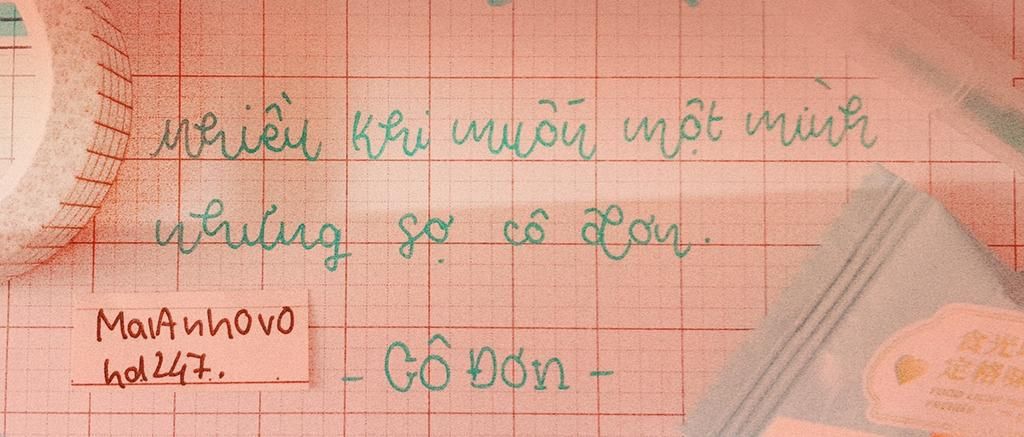 nhiều khi muốn một mình
nhưng sợ cô đơn.
MaiAnhOvO
hd247.
- Cô Đơn -
食光
定格